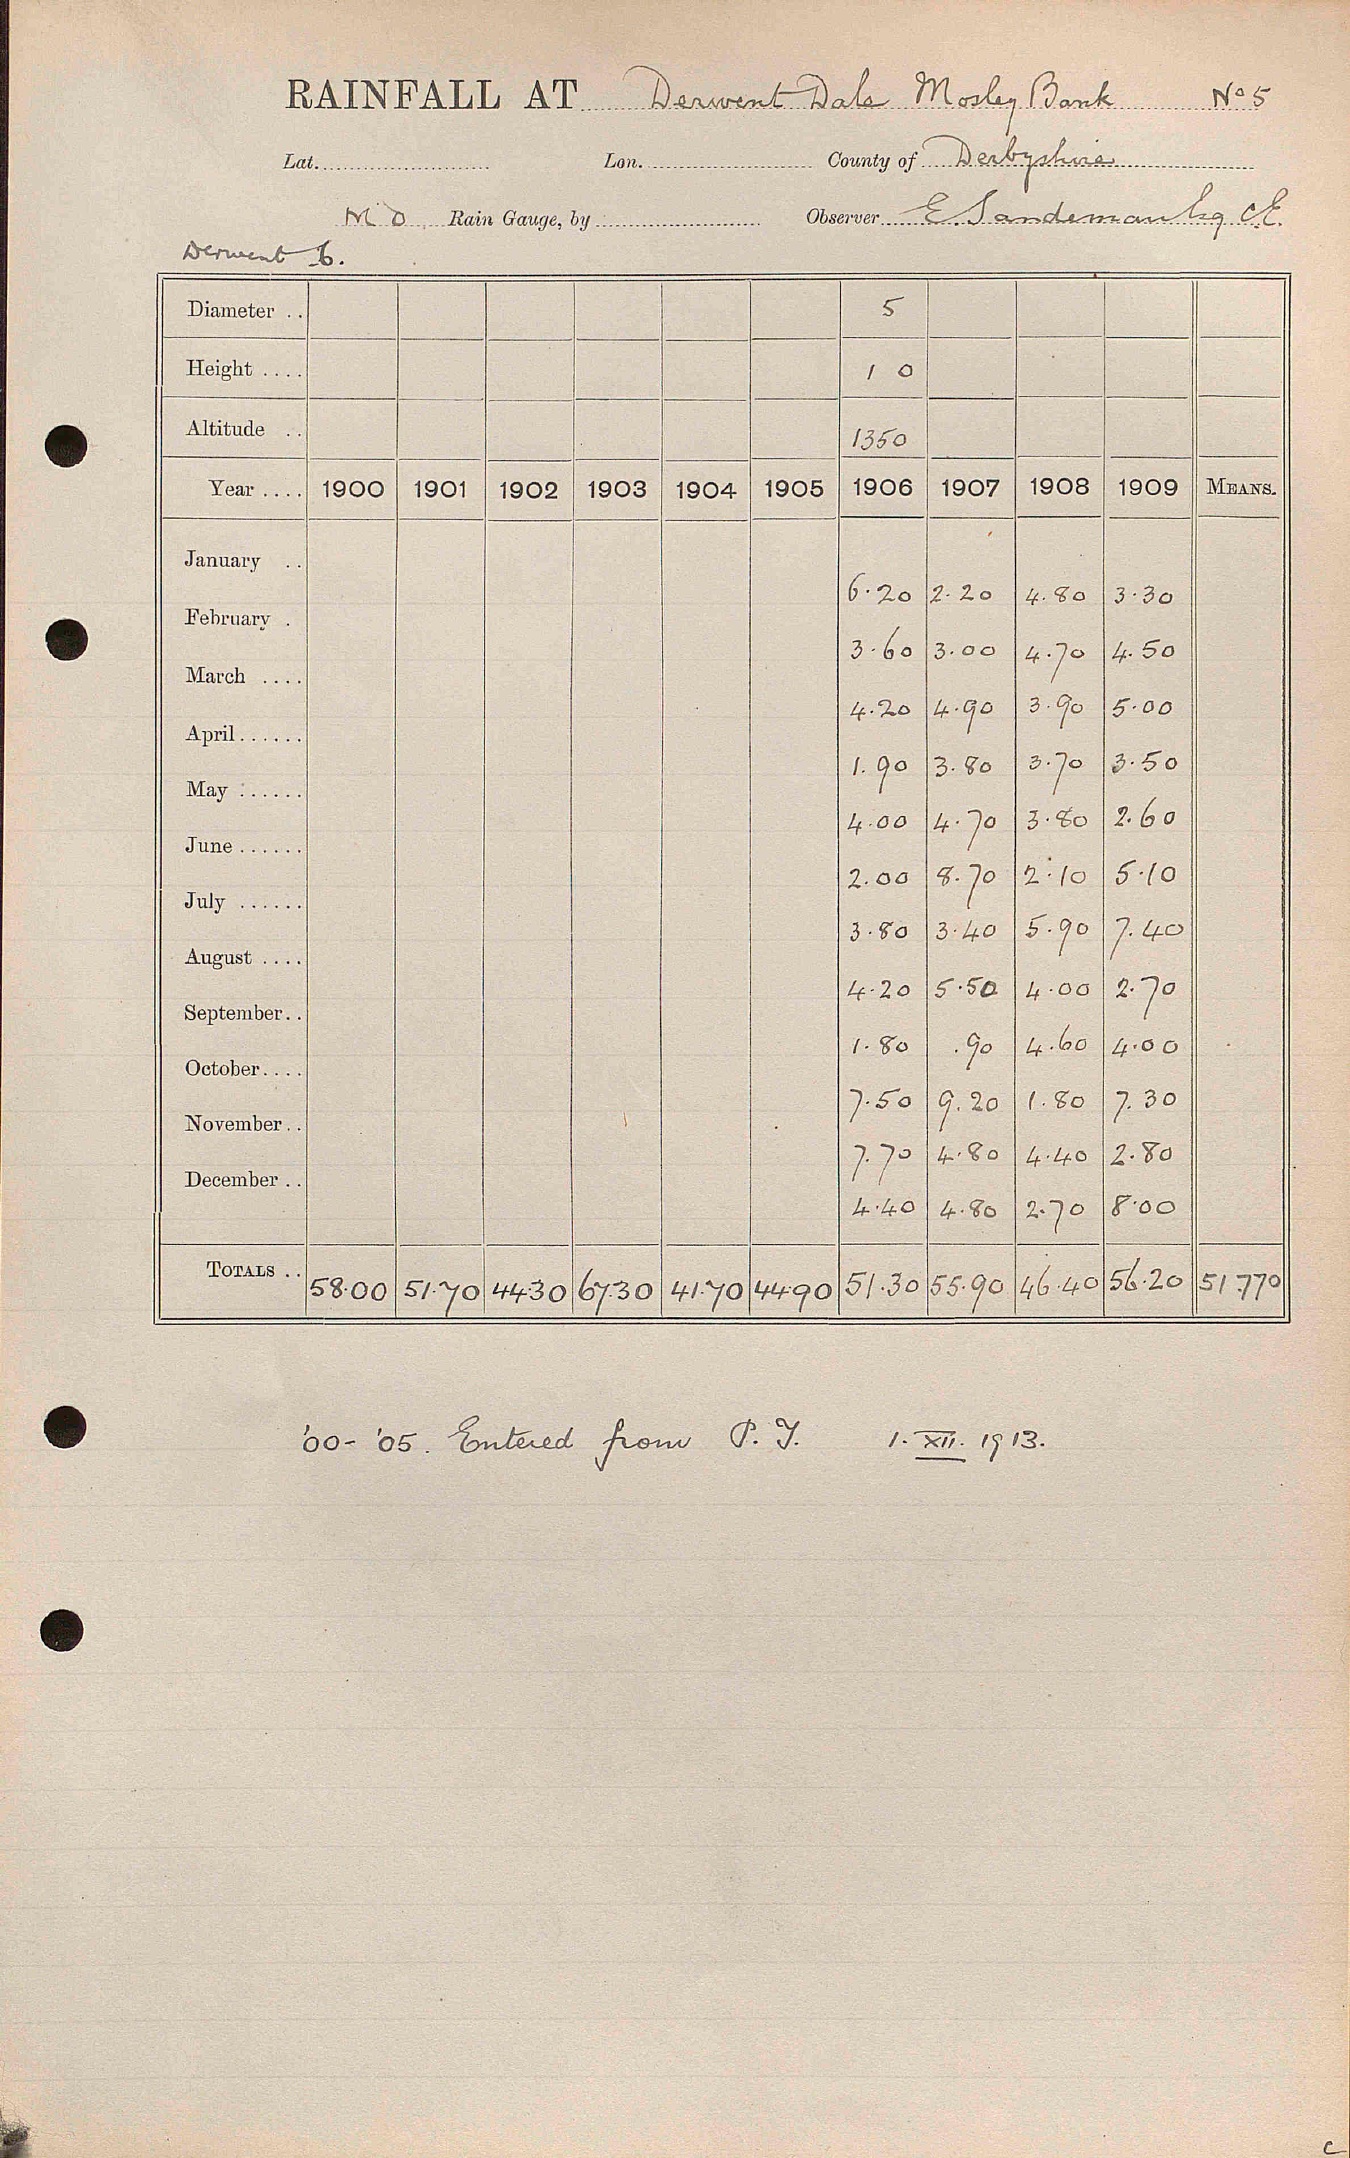 RAINFALL AT Derwent Dale Mosley Bank No 5
Lat. Lon. County of Derbyshire
M O Rain Gauge, by Observer E. Sandeman Esq C.E.
Derwent 6.
Diameter .. 5
Height .... 1 0
Altitude .. 1350
Year .... 1900 1901 1902 1903 1904 1905 1906 1907 1908 1909 MEANS.
January .. 6.20 2.20 4.80 3.30
February . 3.60 3.00 4.70 4.50
March .... 4.20 4.90 3.90 5.00
April...... 1.90 3.80 3.70 3.50
May ...... 4.00 4.70 3.80 2.60
June ...... 2.00 8.70 2.10 5.10
July ...... 3.80 3.40 5.90 7.40
August .... 4.20 5.50 4.00 2.70
September.. 1.80 .90 4.60 4.00
October.... 7.50 9.20 1.80 7.30
November.. 7.70 4.80 4.40 2.80
December .. 4.40 4.80 2.70 8.00
TOTALS .. 58.00 51.70 44.30 67.30 41.70 44.90 51.30 55.90 46.40 56.20 51.770
'00- '05. Entered from P.Y. 1. XII. 1913.
c